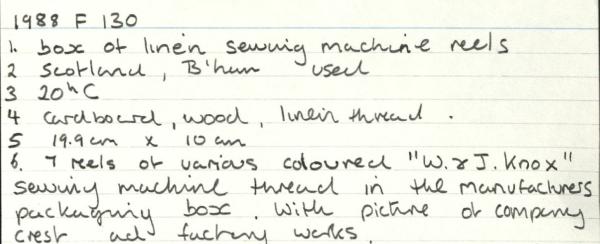 1988 F 130
1. box of linen sewing machine reels
2 Scotland, B'ham used
3 20th C
4 cardboard, wood, linen thread.
5 19.9cm x 10cm
6. 7 reels of various coloured "W. & J. Knox"
sewing machine thread in the manufacturers
packaging box. With picture of company
crest and factory works.